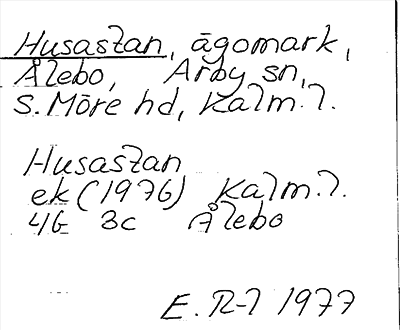 Husastan, ägomark,
Ålebo, Arby sn,
S. Möre hd, Kalm. l.
Husastan
ek (1976) Kalm. l.
4G 3c Ålebo
E. R-l 1977